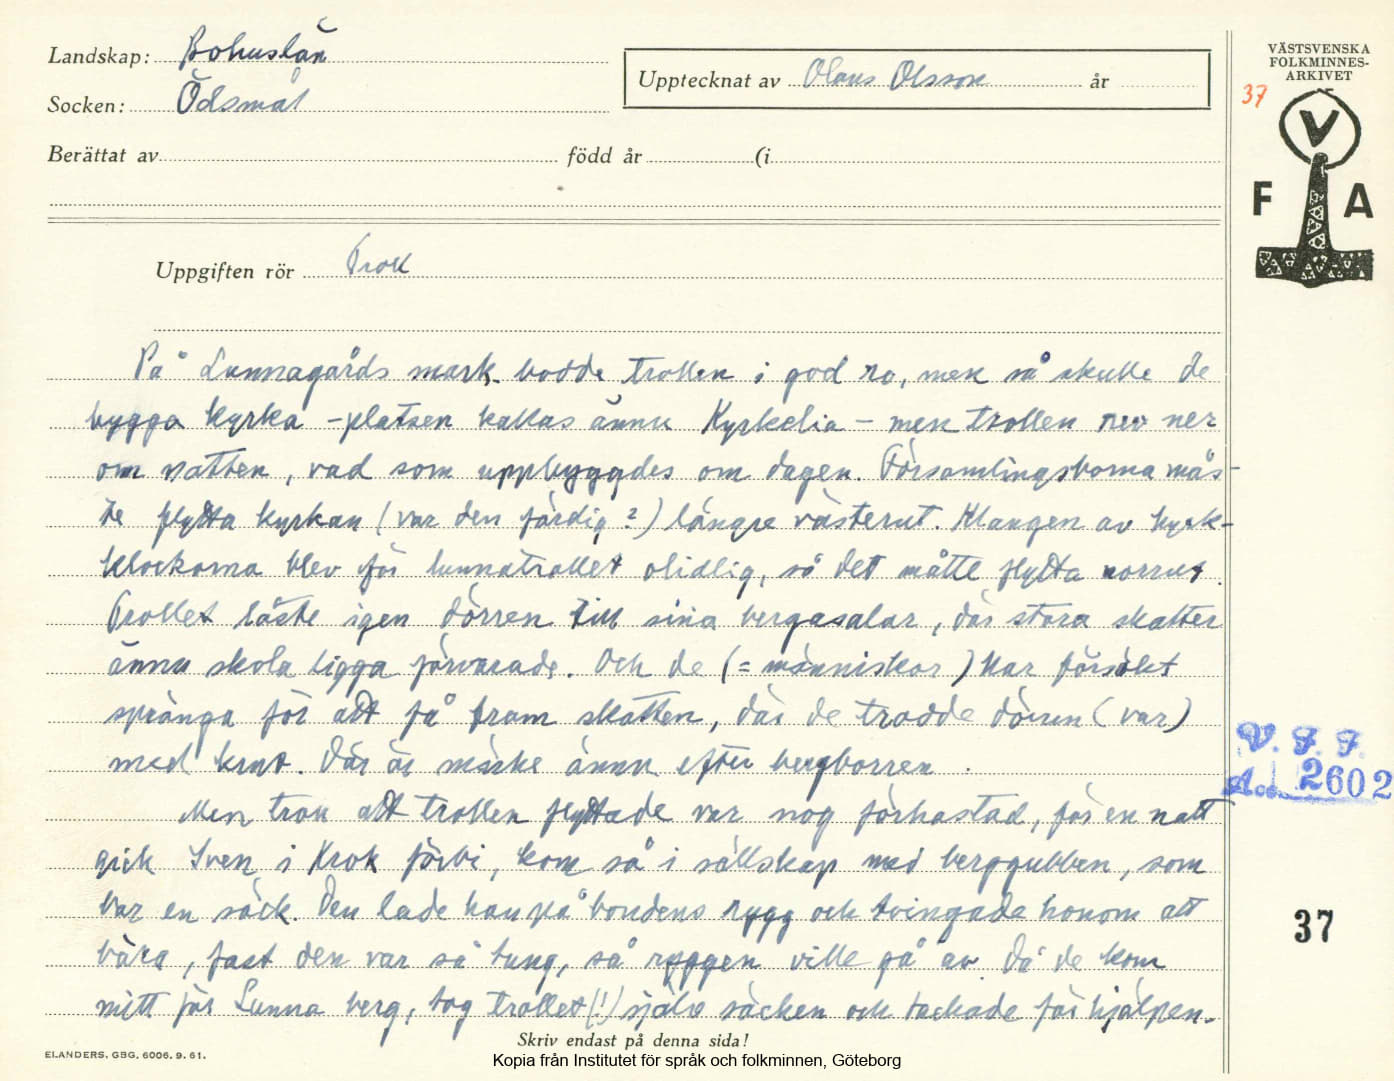 Landskap: Bohuslän
Socken: Ödsmål
Upptecknat av Olaus Olsson år
Berättat av född år (i
VÄSTSVENSKA
FOLKMINNES-
ARKIVET
37
V
F A
Uppgiften rör Troll
På Lunnagårds mark bodde trollen i god ro, men så skulle de
bygga kyrka - platsen kallas ännu Kyrkelia - men trollen rev ner
om natten, vad som uppbyggdes om dagen. Församlingsborna mås-
te flytta kyrkan (var den färdig?) längre västerut. Klangen av kyrk-
klockorna blev för lunnatrollet olidlig, så det måtte flytta norrut.
Trollet låste igen dörren till sina bergasalar, där stora skatter
ännu skola ligga förvarade. Och de (= människor) har försökt
spränga för att få fram skatten, där de trodde dörren (var)
med krut. Där är märke ännu efter bergborren.
Men tron att trollen flyttade var nog förhastad, för en natt
gick Sven i Krok förbi, kom så i sällskap med berggubben, som
bar en säck. Den lade han på bondens rygg och tvingade honom att
bära, fast den var så tung, så ryggen ville gå av. Då de kom
mitt för Lunna berg, tog trollet (!) själv säcken och tackade för hjälpen.
V. F. F.
A. 2602
37
Skriv endast på denna sida!
ELANDERS, GBG, 6006. 9. 61.
Kopia från Institutet för språk och folkminnen, Göteborg